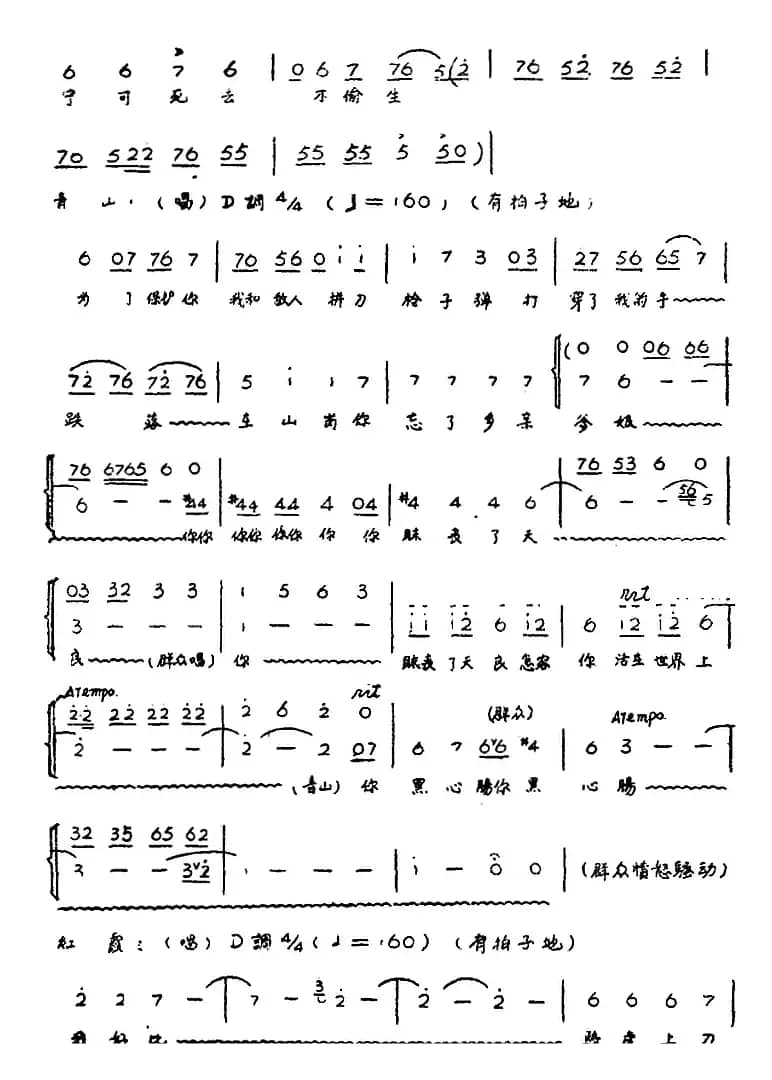 6 6 7 6 | 0 6 7 76 5(2 | 76 52 76 52 |
宁 可 死 去 不 偷 生
70 522 76 55 | 55 55 5 50) |
青 山:(唱)D調4/4(♩=160)(有拍子地)
6 07 76 7 | 76 56 0 i i | i 7 3 03 | 27 56 65 7
为 了 保护 你 我和 敌人 拼 刀 枪 子 弹 打 穿了 我的 手
(0 0 06 66
72 76 72 76 | 5 i i 7 | 7 7 7 7 | 7 6 - -
跌 落 在 山 崗 你 忘 了 乡 亲 爹 娘
76 6765 6 0
76 53 6 0
6 - - #44 | #44 44 4 04 | #4 4 . 4 6 | 6 - - 56 5
你你 你你 你你 你 你 昧 丧 了 天
03 32 3 3 | i 5 6 3
rit
3 - - - | i - - - | ii i2 6 i2 | 6 i2 i2 6
良 (群众唱) 你 昧丧 了天 良 怎容 你 活在 世界 上
ATempo.
rit
22 22 22 22 | 2 6 2 0
(群众)
ATempo.
2 - - - | 2 - 2 07 | 6 7 6v6 #4 | 6 3 - -
(青山) 你 黑 心 腸你 黑 心 腸
32 35 65 62
3 - - 3v2 | i - - - | i - 0 0 | (群众愤怒騷动)
紅 霞:(唱)D調4/4(♩=160)(有拍子地)
2 2 7 - | 7 - 3 2 - | 2 - 2 - | 6 6 6 7
上 刀